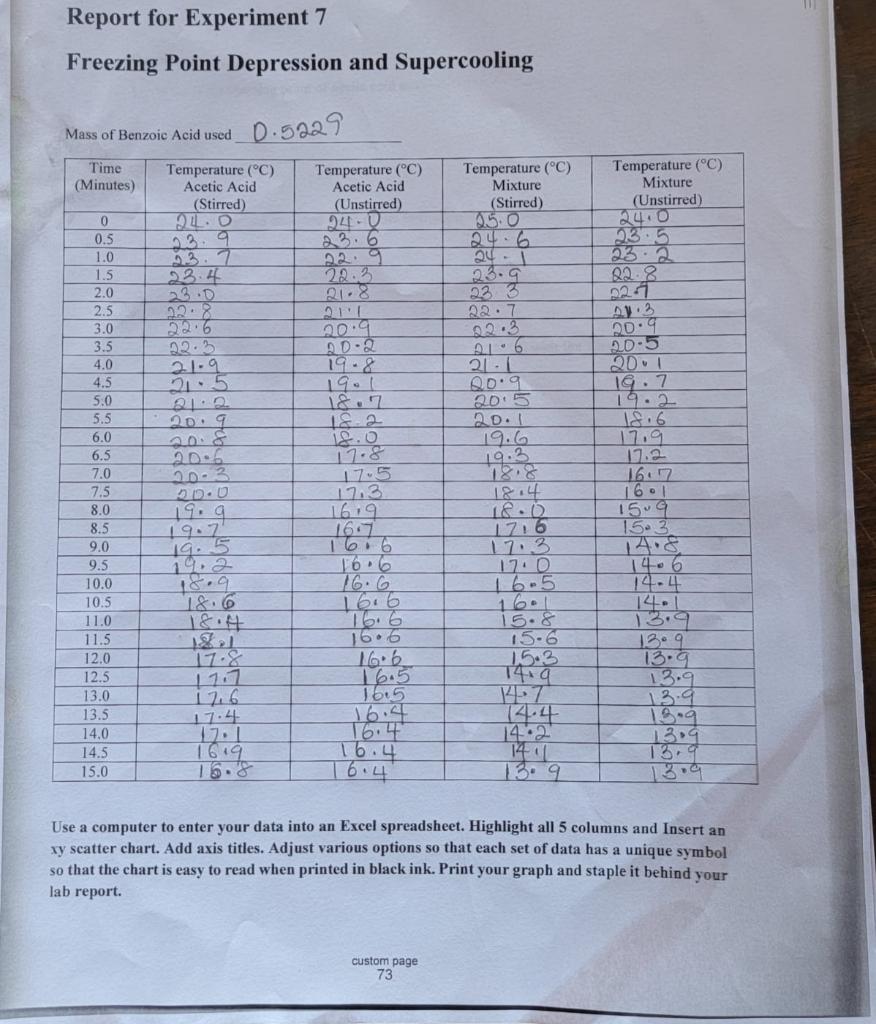 Report for Experiment 7
Freezing Point Depression and Supercooling
Mass of Benzoic Acid used 0.5229
Time (Minutes) Temperature (°C) Acetic Acid (Stirred) Temperature (°C) Acetic Acid (Unstirred) Temperature (°C) Mixture (Stirred) Temperature (°C) Mixture (Unstirred)
0 24.0 24.0 25.0 24.0
0.5 23.9 23.6 24.6 23.5
1.0 23.7 22.9 24.1 23.2
1.5 23.4 22.3 23.9 22.8
2.0 23.0 21.8 23.3
2.5 22.8 21.1 22.7 21.3
3.0 22.6 20.9 22.3 20.9
3.5 22.3 20.2 21.6 20.5
4.0 21.9 19.8 21.1 20.1
4.5 21.5 19.1 20.9 19.7
5.0 21.2 18.7 20.5 19.2
5.5 20.9 18.2 20.1 18.6
6.0 20.8 18.0 19.6 17.9
6.5 20.6 17.8 19.3 17.2
7.0 20.3 17.5 18.8 16.7
7.5 20.0 17.3 18.4 16.1
8.0 19.9 16.9 18.0 15.9
8.5 19.7 16.7 17.6 15.3
9.0 19.5 16.6 17.3 14.8
9.5 19.2 16.6 17.0 14.6
10.0 18.9 16.6 16.5 14.4
10.5 18.6 16.6 16.1 14.1
11.0 18.4 16.6 15.8 13.9
11.5 18.1 16.6 15.6 13.9
12.0 17.8 16.6 15.3 13.9
12.5 17.7 16.5 14.9 13.9
13.0 17.6 16.5 14.7 13.9
13.5 17.4 16.4 14.4 13.9
14.0 17.1 16.4 14.2 13.9
14.5 16.9 16.4 14.1 13.9
15.0 16.8 16.4 13.9 13.9
Use a computer to enter your data into an Excel spreadsheet. Highlight all 5 columns and Insert an
xy scatter chart. Add axis titles. Adjust various options so that each set of data has a unique symbol
so that the chart is easy to read when printed in black ink. Print your graph and staple it behind your
lab report.
custom page
73